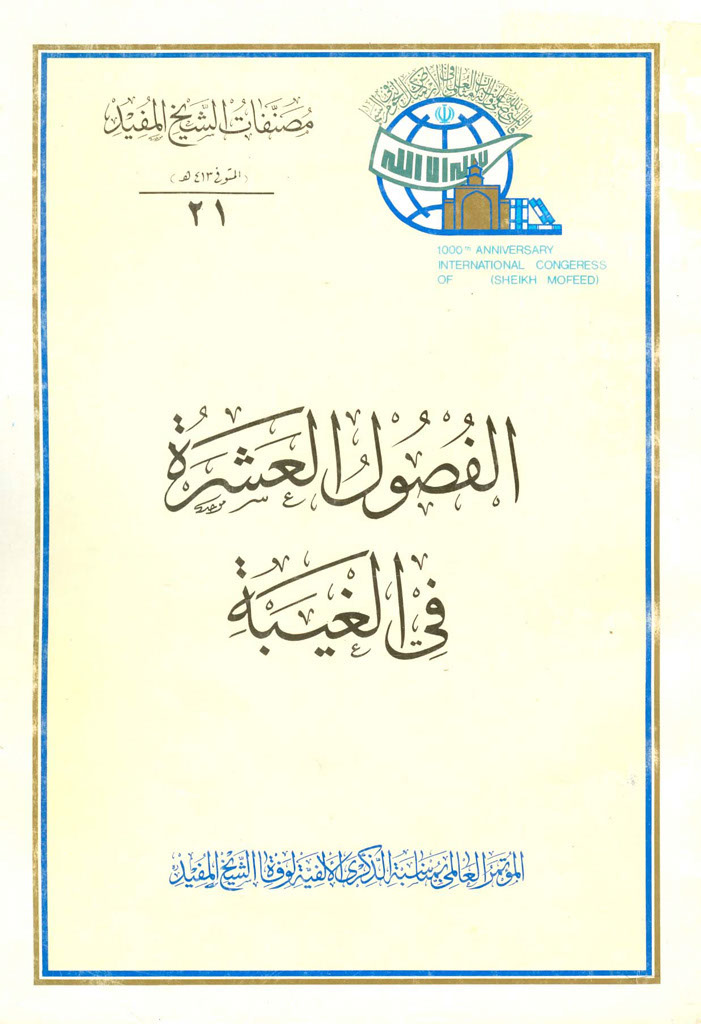 مُصَنَّفَاتُ الشَّيْخِ المُفِيْدِ
(المتوفى ٤١٣ هـ)
٢١
لا إله إلا الله
1000th ANNIVERSARY
INTERNATIONAL CONGERESS
OF (SHEIKH MOFEED)
الفُصُولُ العَشَرَةُ
فِي الغَيْبَةِ
المؤتمر العالمي بمناسبة الذكرى الألفية لوفاة الشيخ المفيد